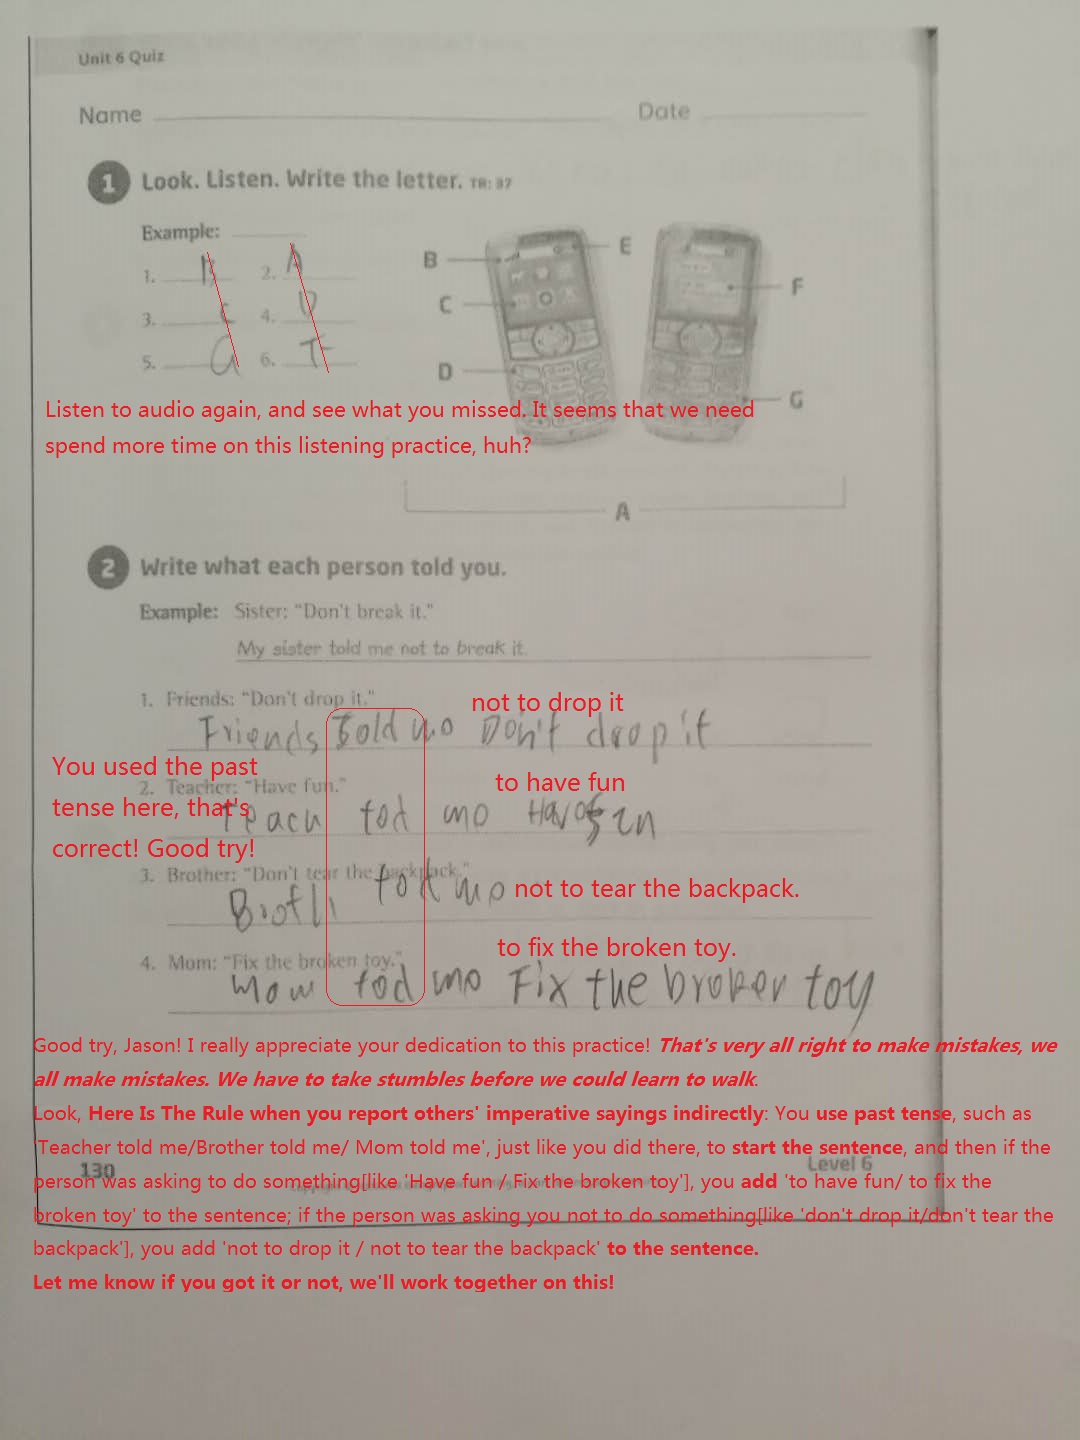 Unit 6 Quiz
Name Date
1 Look. Listen. Write the letter. TR: 37
Example:
1. 2. A
3. C 4. D
5. G 6. F
B
C
D
E
F
G
A
Listen to audio again, and see what you missed. It seems that we need
spend more time on this listening practice, huh?
2 Write what each person told you.
Example: Sister: "Don't break it."
My sister told me not to break it.
1. Friends: "Don't drop it."
not to drop it
Friends told mo Don't drop it
You used the past
tense here, that's
correct! Good try!
2. Teacher: "Have fun."
to have fun
Teach tod mo Have
3. Brother: "Don't tear the backpack."
tod mo
not to tear the backpack.
4. Mom: "Fix the broken toy."
to fix the broken toy.
Mom tod mo Fix the broken toy
Good try, Jason! I really appreciate your dedication to this practice! That's very all right to make mistakes, we
all make mistakes. We have to take stumbles before we could learn to walk.
Look, Here Is The Rule when you report others' imperative sayings indirectly: You use past tense, such as
'Teacher told me/Brother told me/ Mom told me', just like you did there, to start the sentence, and then if the
person was asking to do something[like 'Have fun / Fix the broken toy'], you add 'to have fun/ to fix the
broken toy' to the sentence; if the person was asking you not to do something[like 'don't drop it/don't tear the
backpack'], you add 'not to drop it / not to tear the backpack' to the sentence.
Let me know if you got it or not, we'll work together on this!
130
Level 6